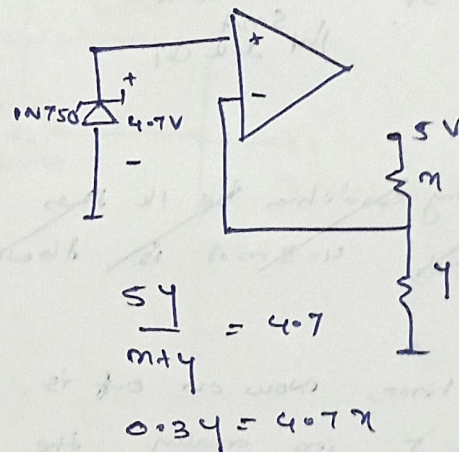 +
-
+
1N750
4.7V
-
5V
x
y
5y
/
x+y
= 4.7
0.3y = 4.7x